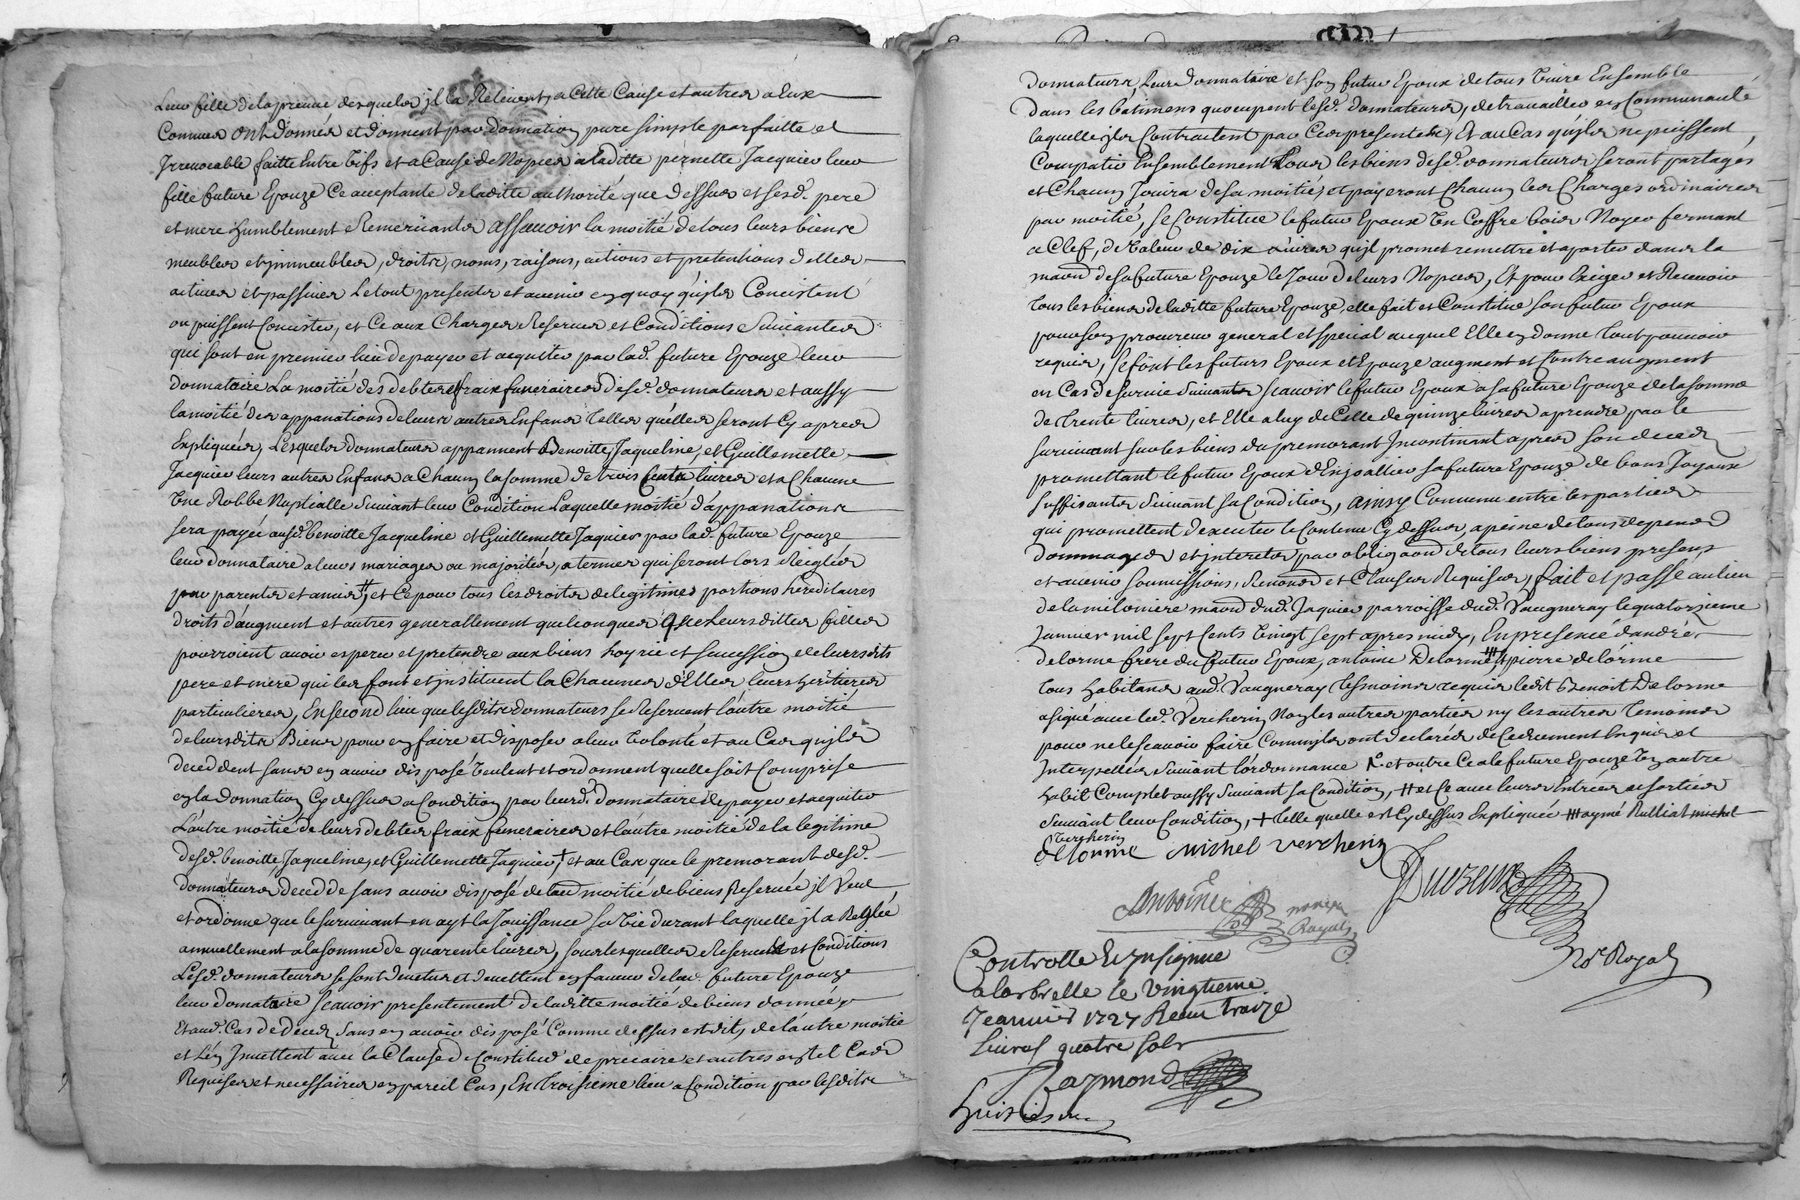 Leur fille de la preuve desquelles jl la Relevent, a Cette Cause et autres a Eux
Connues ont donnés et donnent par donnation pure simple parfaitte et
Jrrevocable faitte Entre Vifs et a Cause de Nopces a laditte pernette Jacquier leur
fille future Epouze Ce acceptante de laditte authorité que dessus et sesd. pere
et mere humblement Remerciants assavoir la moitié de tous leurs biens
meubles et jmmeubles, droits, noms, raisons, actions et pretentions d'elles
actives et passives le tout presents et avenir en quoy qu'jls Concistent
ou puissent Concister, et Ce aux Charges Reserves et Conditions Suivantes
qui sont en premier lieu de payer et acquitter par lad. future Epouze leur
donnataire La moitié des debtes fraix funeraires desd. donnateurs et aussy
la moitié des appanations de leurs autres Enfans Telles quelles seront Cy apres
Expliquées, Lesquels donnateurs appannent Benoitte, Jaqueline, et Guillemette
Jacquier leurs autres Enfans a Chacun la somme de trois Cents livres et a Chacune
Une Robbe Nuptialle Suivant leur Condition Laquelle moitié d'appanations
sera payée ausd. benoitte Jacqueline et Guillemette Jaquier par lad. future Epouze
leur donnataire a leurs mariages ou majorités, a termes qui seront lors Reiglés
par parents et amis ++, et Ce pour tous les droits de legitimes portions héréditaires
droits d'augment et autres generallement quelconques que Leursdittes filles
pourroient avoir esperer et pretendre aux biens hoyrie et succession de leursdits
pere et mere qui les font et jnstituent la Chacunes d'Elles leurs héritieres
particulieres, En second lieu que lesdits donnateurs se Reservent l'autre moitié
de leursdits Biens pour en faire et disposer a leur Volonté et au Cas qu'jls
decedent sans en avoir disposé Veulent et ordonnent quelle soit Comprise
en la donnation Cy dessus a Condition par leurd. donnataire de payer et acquiter
L'autre moitié de leurs debtes fraix funeraires et l'autre moitié de la legitime
desd. benoitte, Jaqueline, et Guillemette Jaquier, + et au Cas que le premorant desd.
donnateurs decedde sans avoir disposé de lad. moitié de biens Reservée jl Veut
et ordonne que le survivant en ayt la Jouissance sa Vie durant laquelle jl a Reglée
annuellement a la somme de quarente livres, sous lesquelles Reserves et Conditions
Lesd. donnateurs se sont devetus et devettent en faveur de lad. future Epouze
leur donnataire scavoir presentement de laditte moitié de biens donnée
Et aud. Cas de deced sans en avoir disposé Comme dessus est dit, de l'autre moitié
et L'en Jnvettent avec la Clause de Constitud de précaire et autres en tel Cas
Requises et necessaires en pareil Cas, En Troisieme lieu a Condition par lesdits
donnateurs, leure donnataire et son futur Epoux de tous Vivre Ensemble
Dans les batimens quoccupent lesd. donnateurs, de travailler en Communauté
laquelle jls Contractent par Ces presentes, Et au Cas qu'jls ne puissent
Compatir Ensemblement Tous les biens desd. donnateurs seront partagés
et Chacun Jouira de sa moitié, et payeront Chacun les Charges ordinaires
par moitié, se Constitue le futur Epoux Un Coffre bois Noyer fermant
a Clef, de Valeur de dix livres qu'jl promet remettre et aporter dans la
maison de sa future Epouze le Jour de leurs Nopces, Et pour Exiger et Recevoir
tous les biens de laditte future Epouze, elle fait et Constitue son futur Epoux
pour son procureur general et special auquel Elle en donne tout pouvoir
requis, se font les futurs Epoux et Epouze augment et Contreaugment
en Cas de survie suivants scavoir le futur Epoux a sa future Epouze de la somme
de Trente livres, et Elle a luy de Celle de quinze livres a prendre par le
survivant sur les biens du premorant Jncontinant apres son deced
promettant le futur Epoux d'Enjoallier sa future Epouze de bons Joyaux
suffisantes Suivant sa Condition, ainsy Convenu entre les parties
qui promettent d'executer le Contenu Cy dessus, a peine de tous depens
dommages et interets, par obligaon de tous leurs biens presens
et avenir soumissions, Renons et Clauses Requises, fait et passé au lieu
de la milonière maison dud. Jaquier parroisse dud. Vaugneray le quatorzieme
Janvier mil sept Cents Vingt sept apres midy, En presence d'andré
delorme frere du futur Epoux, antoine Delorme +++ pierre delorme
tous habitans aud. Vaugneray Tesmoins requis ledit Benoit Delorme
a signé avec led. Vercherin Non les autres parties ny les autres Temoins
pour ne le scavoir faire Comm'jls ont declarés de Ce deuement Enquis et
Interpellés suivant l'ordonnance, et outre Ce a la future Epouze Un autre
habit Complet aussy Suivant sa Condition, ++ et Ce avec leurs Entrées et sorties
Suivant leur Condition, + Telle quelle est Cy dessus Expliquée +++ aymé Rulliat michel
Vercherin
delorme michel vercherin
Duvernay
Antoine
Royal
No. Royal
Controllé Ex Insignué
a larbrelle le vingtieme
Jeanvier 1727 Receu traize
Livres quatre sols
Raymond